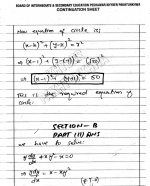 BOARD OF INTERMEDIATE & SECONDARY EDUCATION PESHAWAR KHYBER PAKHTUNKHWA
CONTINUATION SHEET
Now equation of circle is;
(x-h)² + (y-k)² = r²
⇒ (x-1)² + (y+1)² = (√50)²
⇒ (x-1)² + (y+1)² = 50
This is the required equation of circle.
SECTION - B
PART (ii) ANS
we have to solve:
dy/dx + xy² - x = 0
⇒ dy/dx = x - xy²
(P.T.O)